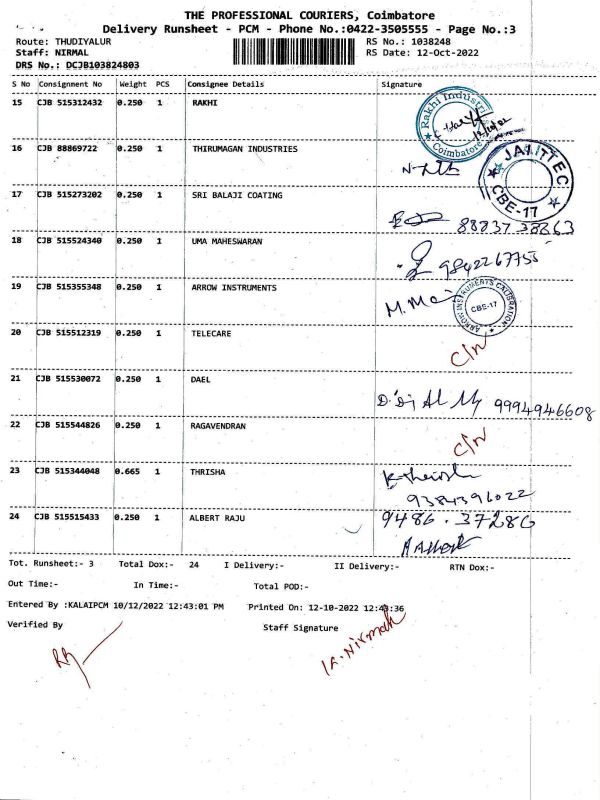 THE PROFESSIONAL COURIERS, Coimbatore
Delivery Runsheet - PCM - Phone No.:0422-3505555 - Page No.:3
Route: THUDIYALUR RS No.: 1038248
Staff: NIRMAL RS Date: 12-Oct-2022
DRS No.: DCJB103824803
S No Consignment No Weight PCS Consignee Details Signature
15 CJB 515312432 0.250 1 RAKHI
Rakhi Industri
Coimbatore
16 CJB 88869722 0.250 1 THIRUMAGAN INDUSTRIES
JAI TEC
CBE-17
17 CJB 515273202 0.250 1 SRI BALAJI COATING
88837 38863
18 CJB 515524340 0.250 1 UMA MAHESWARAN
9842267755
19 CJB 515355348 0.250 1 ARROW INSTRUMENTS
ARROW INSTRUMENTS CALIBRATION
CBE-17
20 CJB 515512319 0.250 1 TELECARE
C/N
21 CJB 515530072 0.250 1 DAEL
9994946608
22 CJB 515544826 0.250 1 RAGAVENDRAN
C/N
23 CJB 515344048 0.665 1 THRISHA
9384396022
24 CJB 515515433 0.250 1 ALBERT RAJU 9486.37286
Tot. Runsheet:- 3 Total Dox:- 24 I Delivery:- II Delivery:- RTN Dox:-
Out Time:- In Time:- Total POD:-
Entered By :KALAIPCM 10/12/2022 12:43:01 PM Printed On: 12-10-2022 12:43:36
Verified By Staff Signature